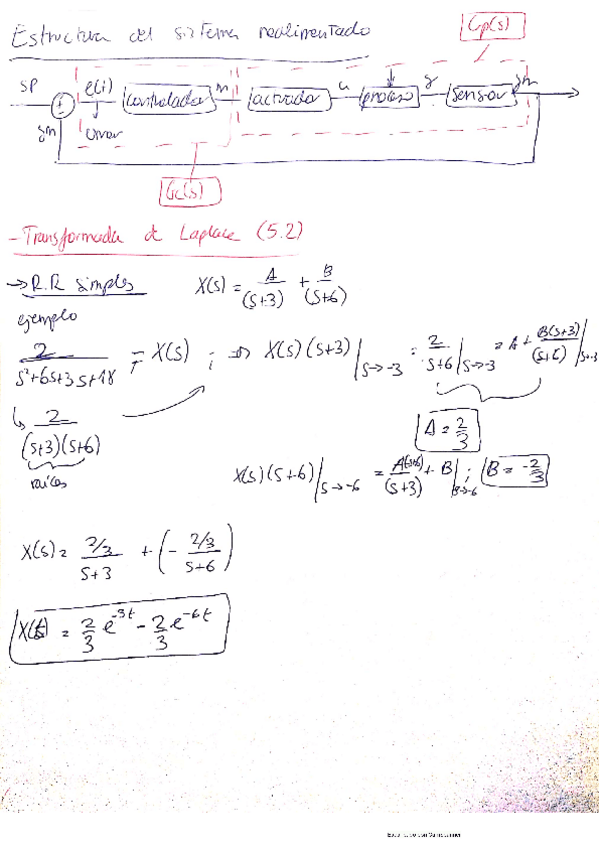 Estructura del sistema realimentado
Gp(s)
SP
e(t)
controlador
m
actuador
u
proceso
y
sensor
ym
ym
error
Gc(s)
- Transformada de Laplace (5.2)
→ R.R simples
X(s) = A/(s+3) + B/(s+6)
ejemplo
2/(s²+6s+3s+18) = X(s) ; ⇒ X(s)(s+3)|s→-3 = 2/(s+6)|s→-3 = A + B(s+3)/(s+6)|s→-3
↳ 2/((s+3)(s+6))
raíces
A = 2/3
X(s)(s+6)|s→-6 = A(s+6)/(s+3) + B|s→-6 ; B = -2/3
X(s) = 2/3/(s+3) + (- 2/3/(s+6))
X(t) = 2/3 e^-3t - 2/3 e^-6t